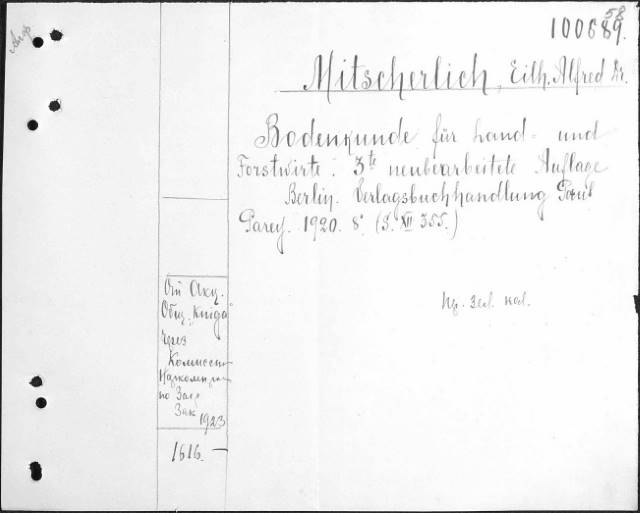 58
100689.
Mitscherlich, Eilh. Alfred Dr.
Bodenkunde für Land- und
Forstwirte. 3te neubearbeitete Auflage
Berlin. Verlagsbuchhandlung Paul
Parey. 1920. 8°. (S. XII 355.)
От Акц.
Общ. "Книга"
через
Комиссию
по
Зак 1923
1616. —